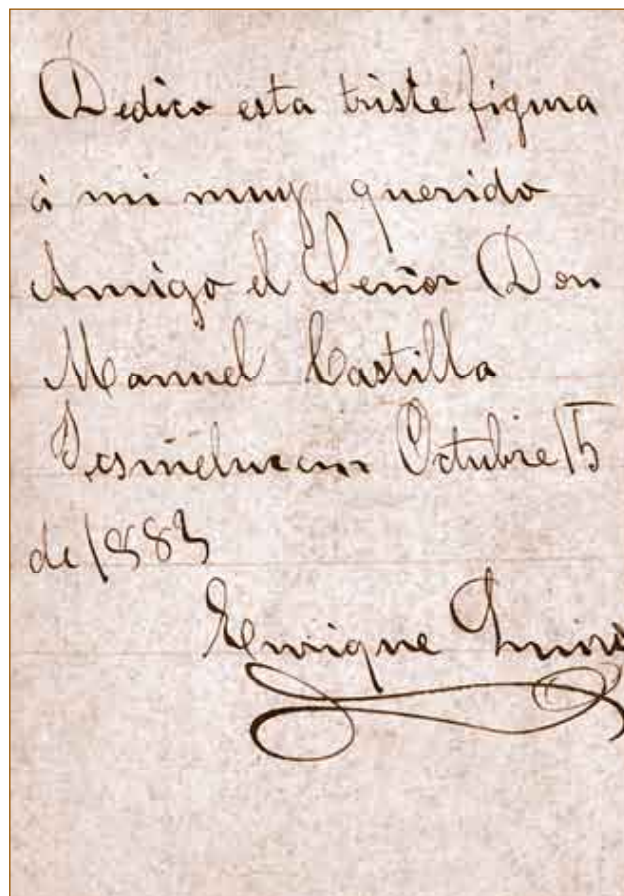 Dedico esta triste figura
á mi muy querido
Amigo el Señor Don
Manuel Castilla
Octubre 15
de 1883
Enrique